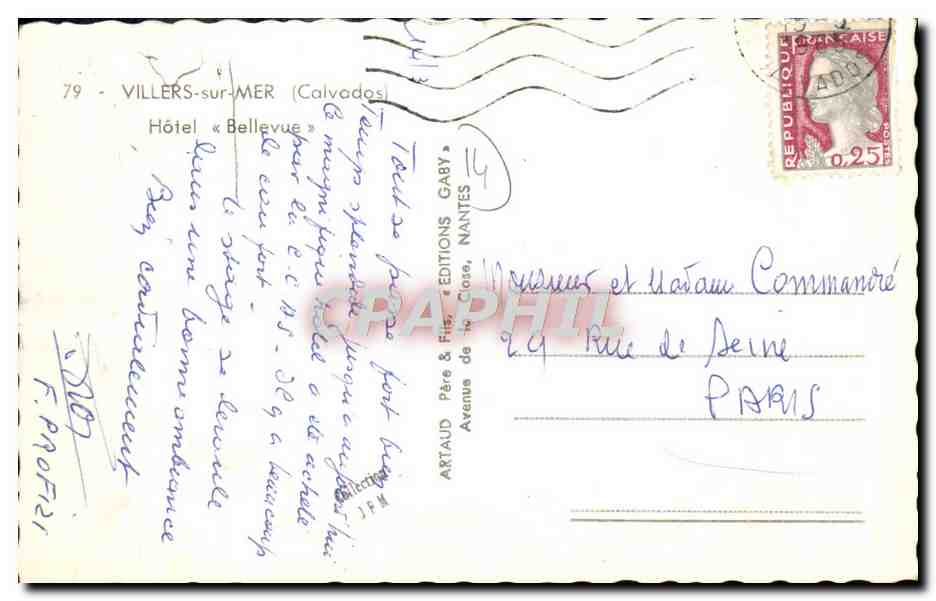 79 - VILLERS-sur-MER (Calvados)
Hôtel « Bellevue »
Tout se passe fort bien
Temps splendide jusqu'à aujourd'hui.
Ce magnifique hôtel a été acheté
par la C.C.
Il y a beaucoup
de confort -
Le stage se déroule
dans une bonne ambiance
Bien cordialement
F. PROFIZI
ARTAUD Père & Fils, « EDITIONS GABY »
Avenue de la Close, NANTES
REPUBLIQUE FRANÇAISE
POSTES
0,25
Monsieur et Madame Commandré
24 Rue de Seine
PARIS
Collection
JFM
CPAPHIL